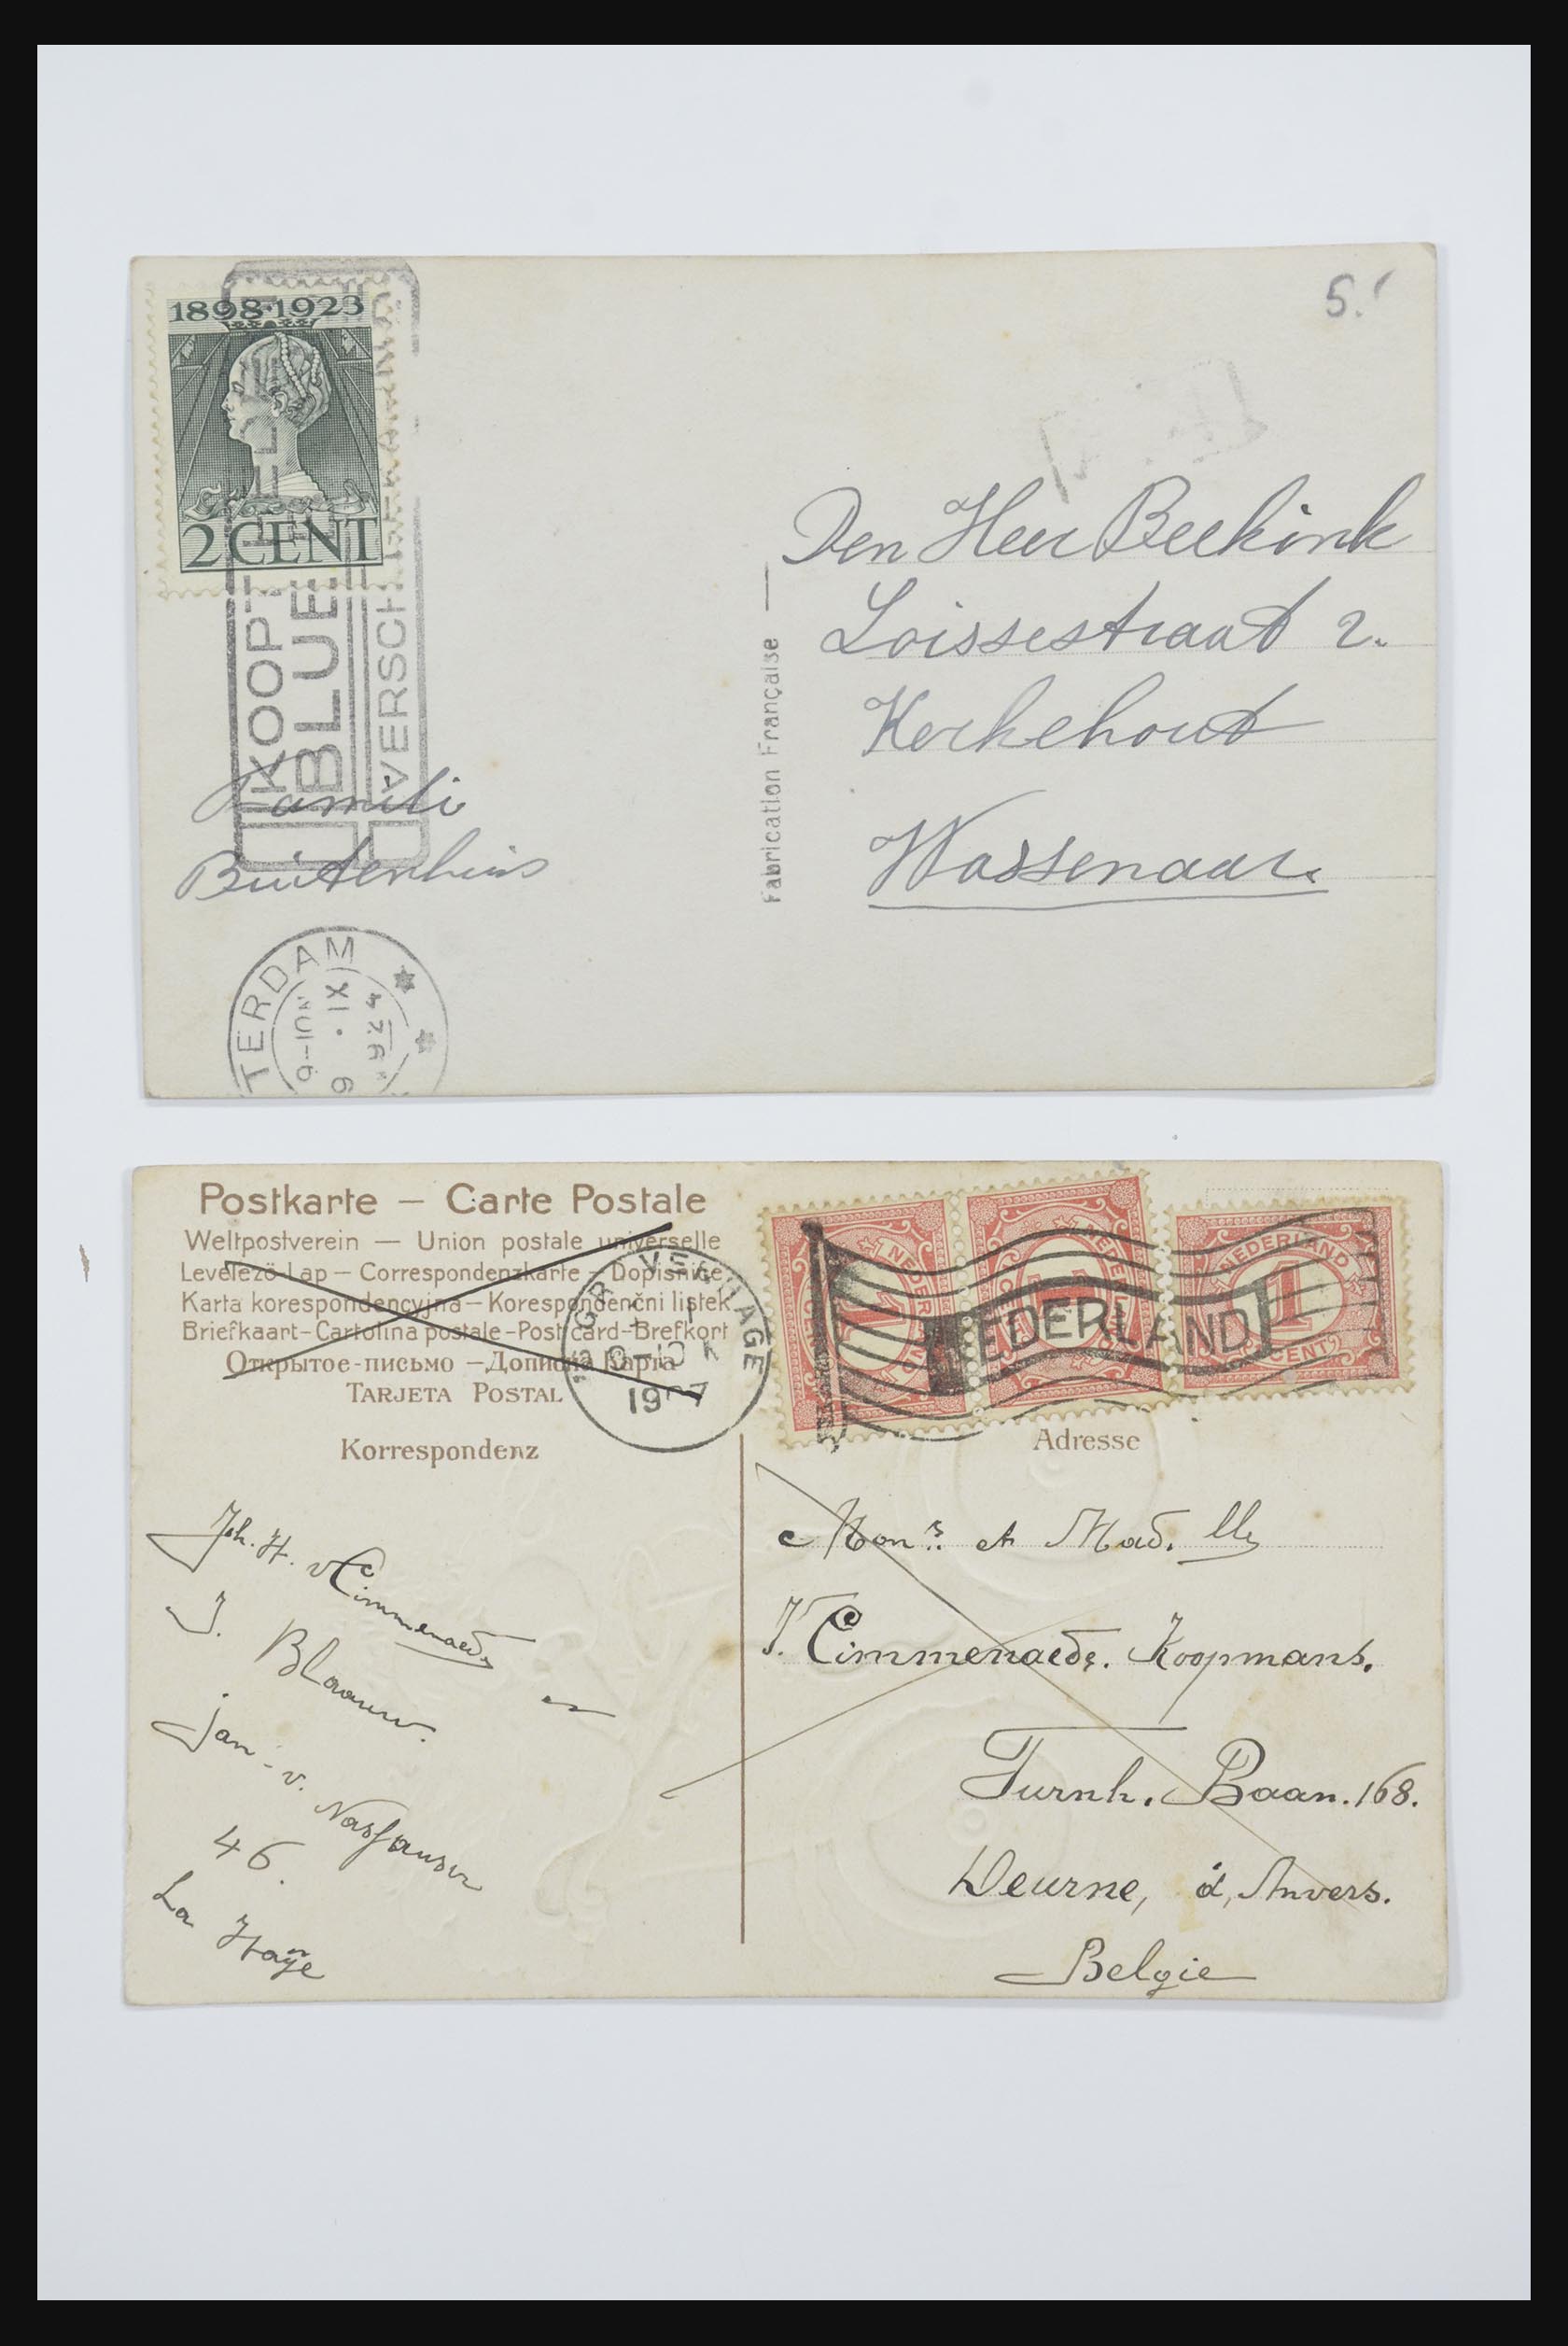 1898·1923
2 CENT
KOOP
BLUE
VERSCH
5.
Den Heer Beekink
Loissestraat 2.
Kerkehout
Wassenaar.
Fabrication Française
Famili
Buitenhuis
TERDAM
9-10
6 · XI
Postkarte — Carte Postale
Weltpostverein — Union postale universelle
Levelező-Lap — Correspondenzkarte — Dopisnice
Karta korespondencyjna — Korespondenčni listek
Briefkaart-Cartolina postale-Post card-Brefkort
Открытое-письмо — Дописна Карта
TARJETA POSTAL
VENHAGE
NEDERLAND
NEDERLAND
1
CENT
Korrespondenz
Adresse
Joh. H. v Cimmenaede
J. Blaauw.
Jan - v. Nassauser
46.
La Haye
Mons. et Mad. lle
V. Cimmenaede. Koopmans.
Turnh. Baan. 168.
Deurne, d, Anvers.
Belgie